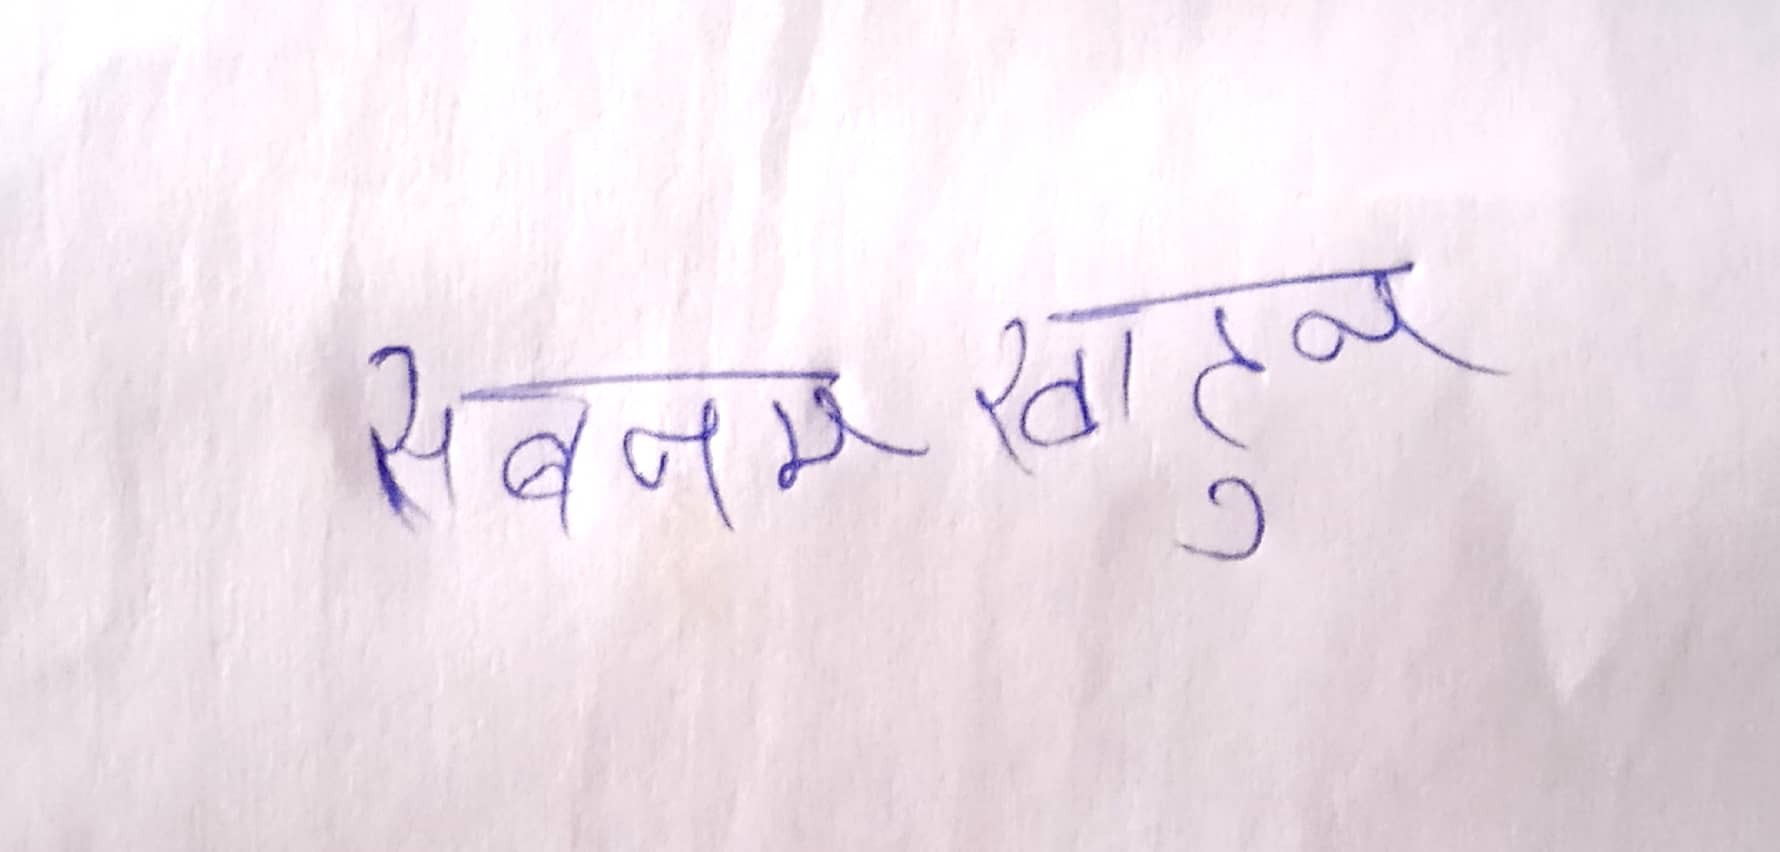 सबनम खातुन